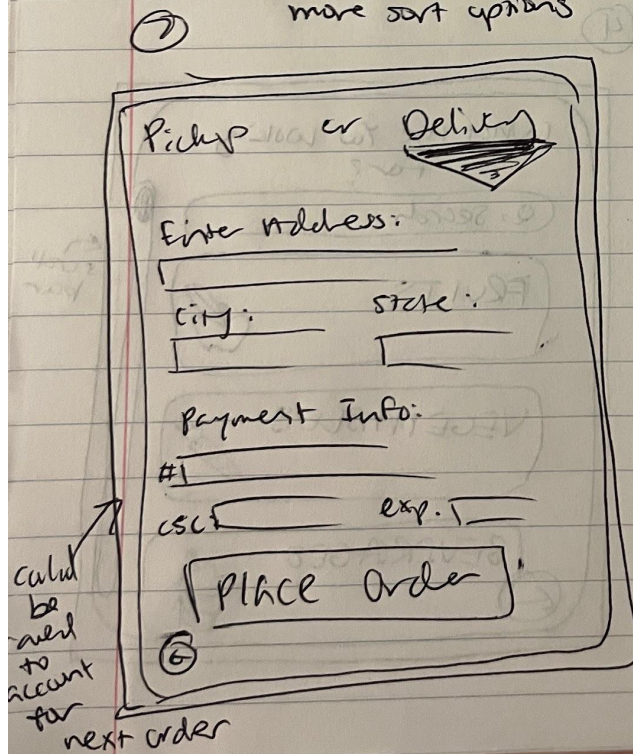 more sort options
7
Pickup or Delivery
Enter Address:
City: State:
Payment Info:
#
CSC: exp.
Place Order
6
could
be
to
account
for
next order